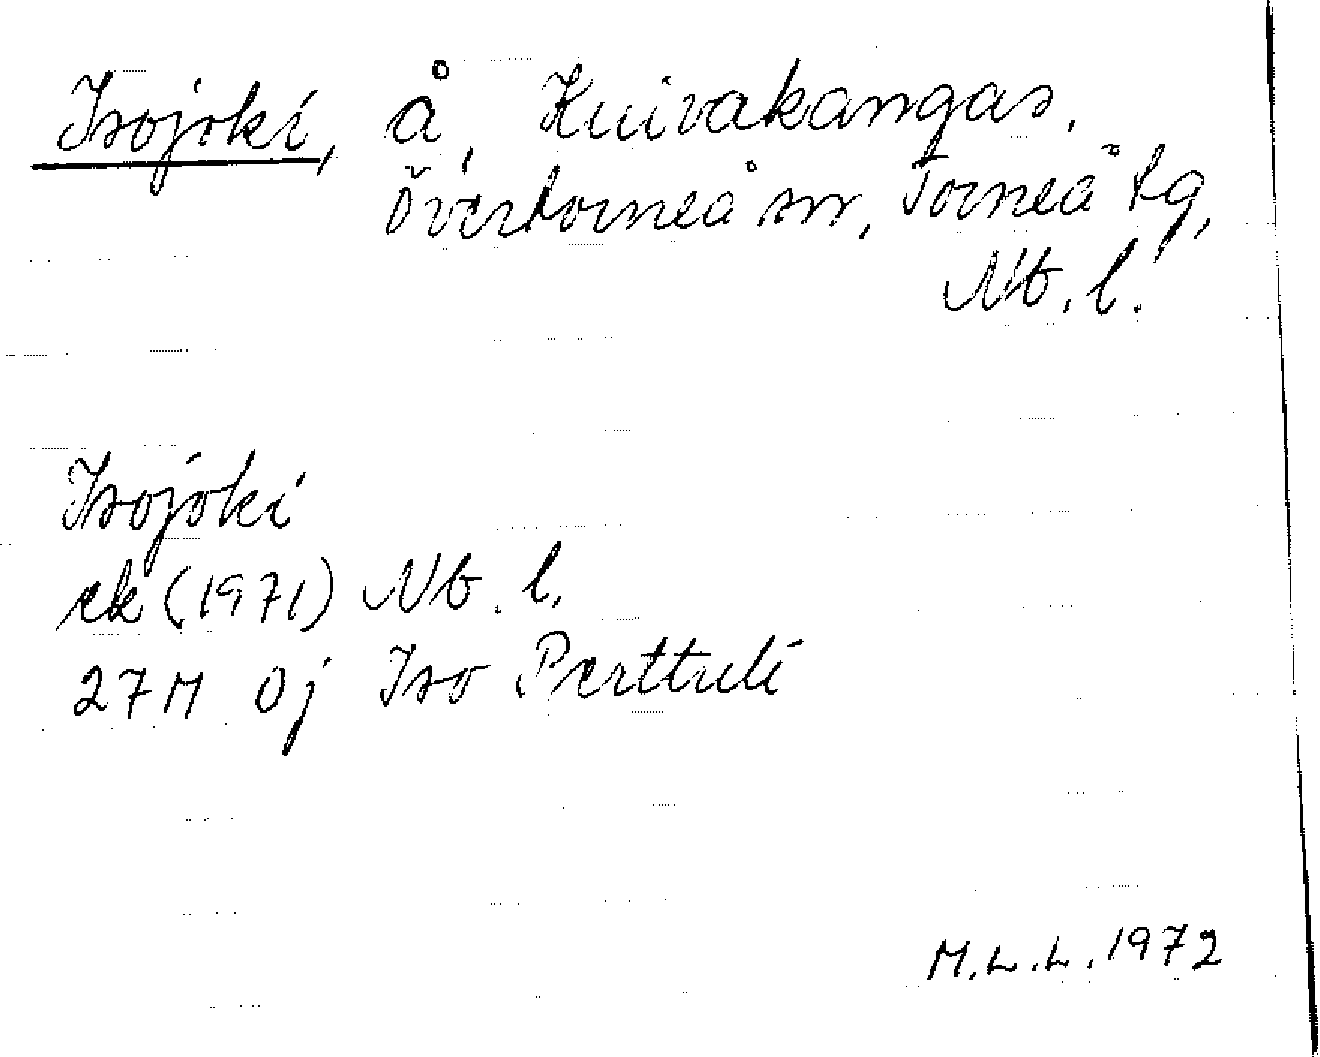 Isojoki, å, Kuivakangas,
Övertorneå sn, Torneå tg,
Nb. l.
Isojoki
ek (1971) Nb. l.
27M 0j Iso Perttuli
M.L.L. 1972